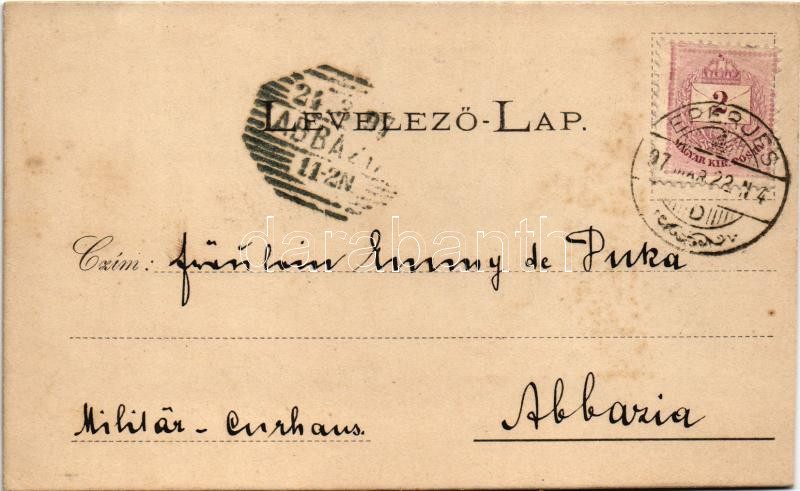 LEVELEZŐ-LAP.
2
MAGYAR KIR. POSTA
EPERJES
97 MAR. 22. N 4
D
24 3 97
ABBAZIA
11-2N
darabanth
Czím: Fräulein Emmy de Puka
Militär-Curhaus.
Abbazia